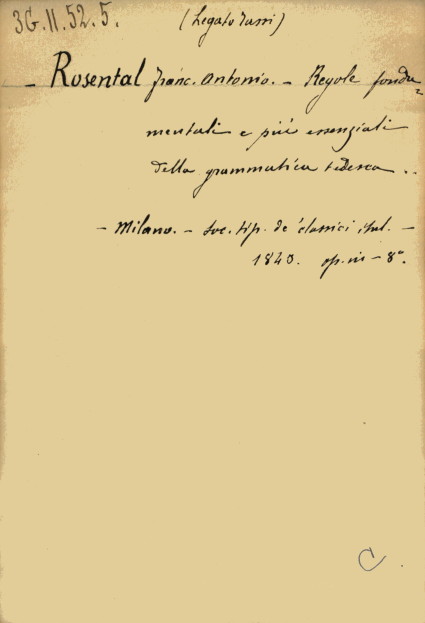 3G.II.52.5. (Legato Tassi)
- Rosental Franc. Antonio. - Regole fonda=
mentali e più essenziali
della grammatica tedesca ..
- Milano. - Soc. tip. de' classici ital. -
1840. op. in - 8°.
C